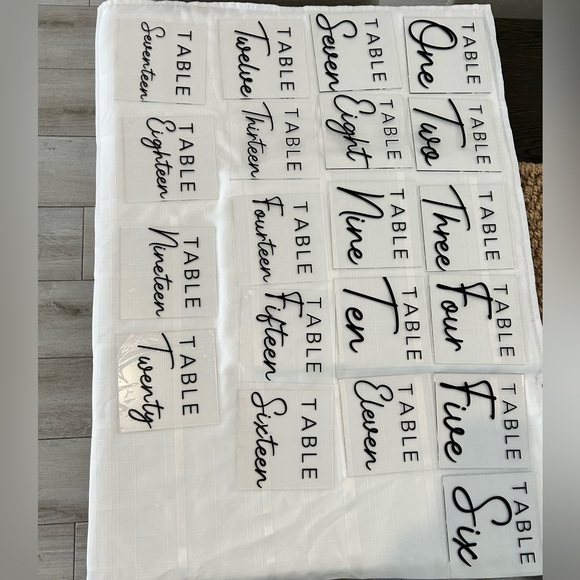 TABLE
One
TABLE
Two
TABLE
Three
TABLE
Four
TABLE
Five
TABLE
Six
TABLE
Seven
TABLE
Eight
TABLE
Nine
TABLE
Ten
TABLE
Eleven
TABLE
Twelve
TABLE
Thirteen
TABLE
Fourteen
TABLE
Fifteen
TABLE
Sixteen
TABLE
Seventeen
TABLE
Eighteen
TABLE
Nineteen
TABLE
Twenty